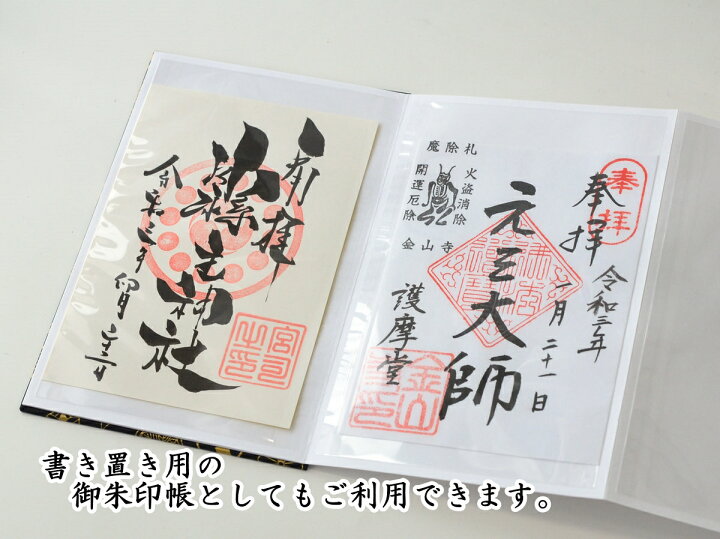 奉拝
神社
令和三年
卯月
宮司
之印
魔除札
火盗消除
開運厄除
金山寺
奉拝
奉拝
令和三年
一月二十一日
元三大師
護摩堂
金山
書き置き用の
御朱印帳としてもご利用できます。